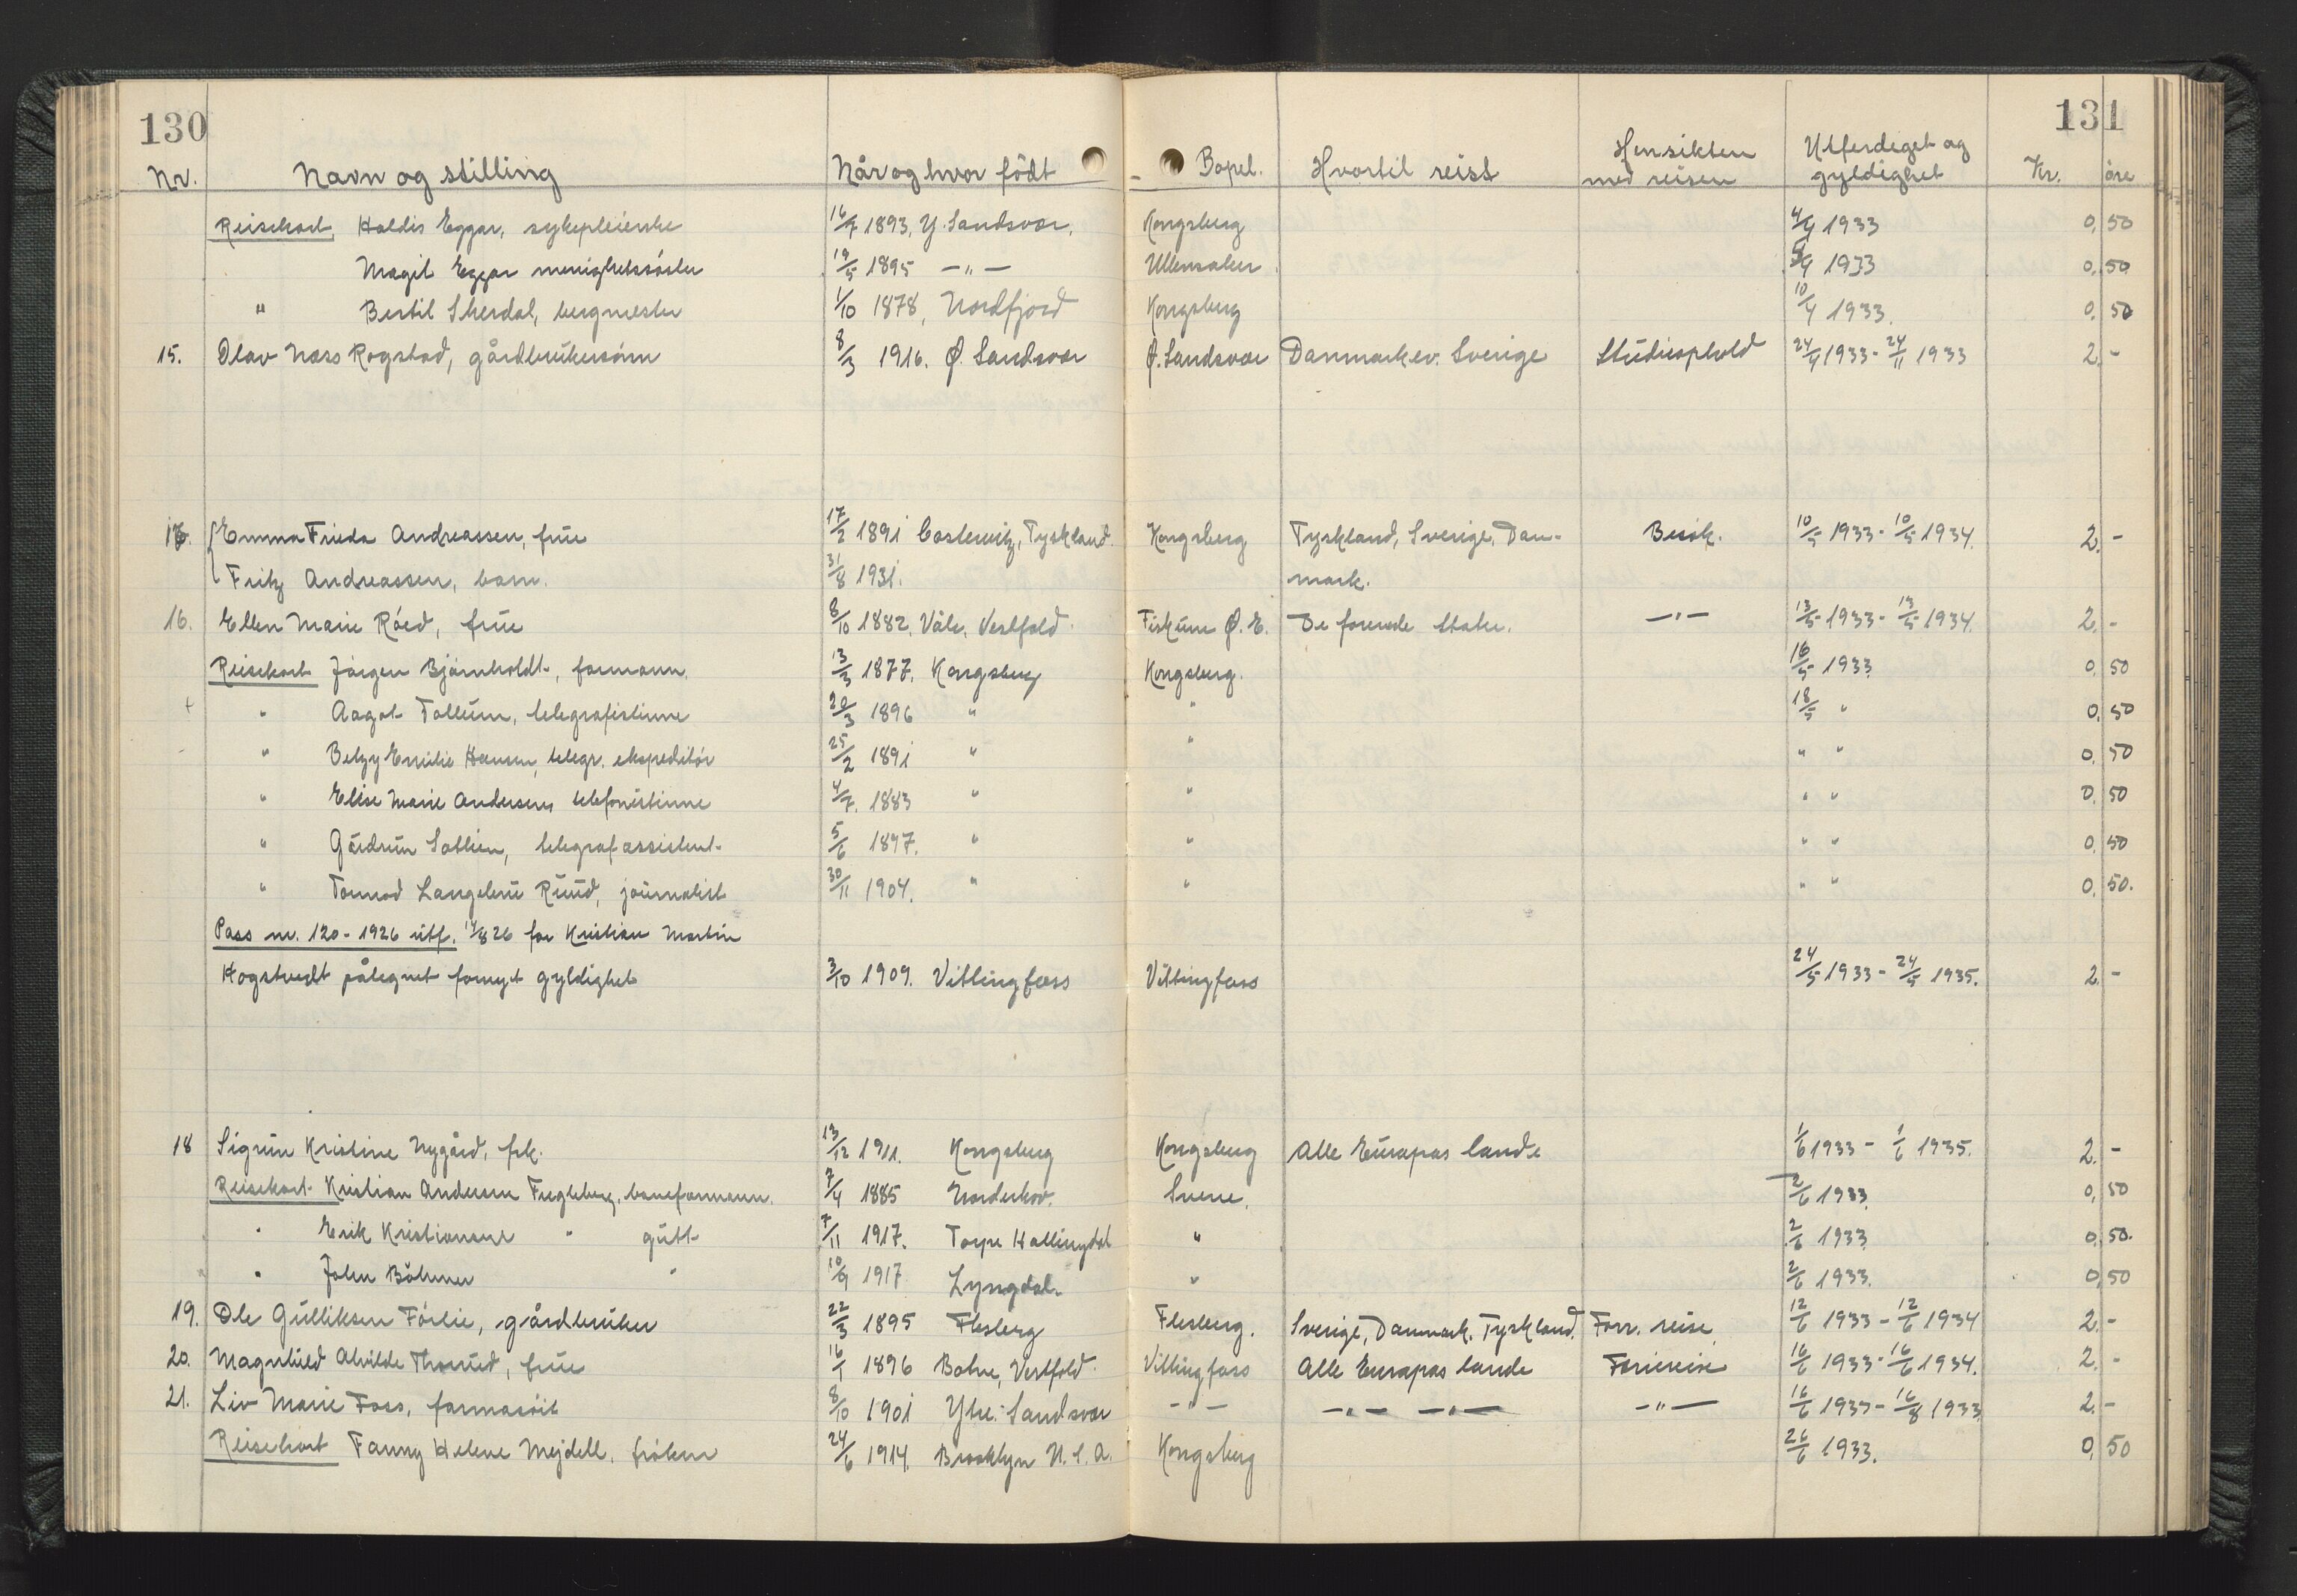 130 131
Nr. Navn og stilling Når og hvor født Bopel. Hvortil reist Hensikten med reisen Utferdiget og gyldighet Kr. øre
Reisekort Haldis Eggar, sykepleierske 16/7 1893, Y. Sandsvær, Kongsberg 4/4 1933 0, 50
Magit Eggar menighetssøster 19/5 1895 -"- Ullensaker 5/4 1933 0, 50
" Bertil bergmester 1/10 1878, Nordfjord Kongsberg 10/4 1933. 0, 50
15. Olav Næss Rogstad, gårdbrukersønn 8/3 1916. Ø. Sandsvær Ø. Sandsvær Danmark ev. Sverige Studieophold 24/4 1933 - 24/11 1933 2. -
17. Emma Frieda Andreassen, frue 17/2 1891 Tyskland. Kongsberg Tyskland, Sverige, Dan- Besøk. 10/5 1933 - 10/5 1934. 2. -
Fritz Andreassen, barn. 31/8 1931. mark.
16. Ellen Marie Røed, frue 8/10 1882, Våle, Vestfold. Fiskum Ø. E. De forende Stater. -"- 13/5 1933 - 13/5 1934. 2. -
Reisekort Jørgen Bjørnholdt, formann. 13/3 1877. Kongsberg Kongsberg. 16/5 1933 0, 50
+ " Aagot Tollum, telegrafistinne 20/3 1896 " " 18/5 " 0, 50
- " Betzy Emilie Hansen, telegr. ekspeditør 25/2 1891 " " " " 0, 50
" Elise Marie Andersen, telefonistinne 4/7. 1883 " " " " 0. 50
" Gudrun telegrafassistent 5/6 1897. " " " " 0, 50
" Tormod Langelrue Ruud, journalist 30/11 1904. " " " " 0, 50.
Pass nr. 120 - 1926 utf. 14/8 26 for Kristian Martin
Hogstvedt påtegnet fornyet gyldighet 3/10 1909. Vittingfoss Vittingfoss 24/5 1933 - 24/5 1935. 2. -
18 Sigrun Kristine Nygård, frk. 13/12 1911. Kongsberg Kongsberg Alle Europas lande 1/6 1933 - 1/6 1935. 2. -
Reisekort Kristian Andersen Fugleberg, baneformann. 7/4 1885 Norderhov. Svene. 2/6 1933. 0, 50
" Erik Kristiansen " gutt 7/11 1917. Torpe Hallingdal " 2/6 1933 0, 50.
" John Bøhmer " 10/9 1917 Lyngdal. " 2/6 1933. 0, 50
19. Ole Gulliksen Førlie, gårdbruker 22/3 1895 Flesberg Flesberg. Sverige, Danmark. Tyskland. Forr. reise 12/6 1933 - 12/6 1934 2. -
20. Magnhild Alvilde Thorrud, frue 16/1 1896 Botne, Vestfold. Vittingfoss Alle Europas lande Feriereise 16/6 1933 - 16/6 1934. 2. -
21. Liv Marie Foss, farmasøit 8/10 1901 Ytre. Sandsvær -"- -"- -"- -"- 16/6 1933 - 16/8 1933 2. -
Reisekort Fanny Helene Mejdell, frøken 24/6 1914. Brooklyn U. S. A. Kongsberg 26/6 1933. 0, 50